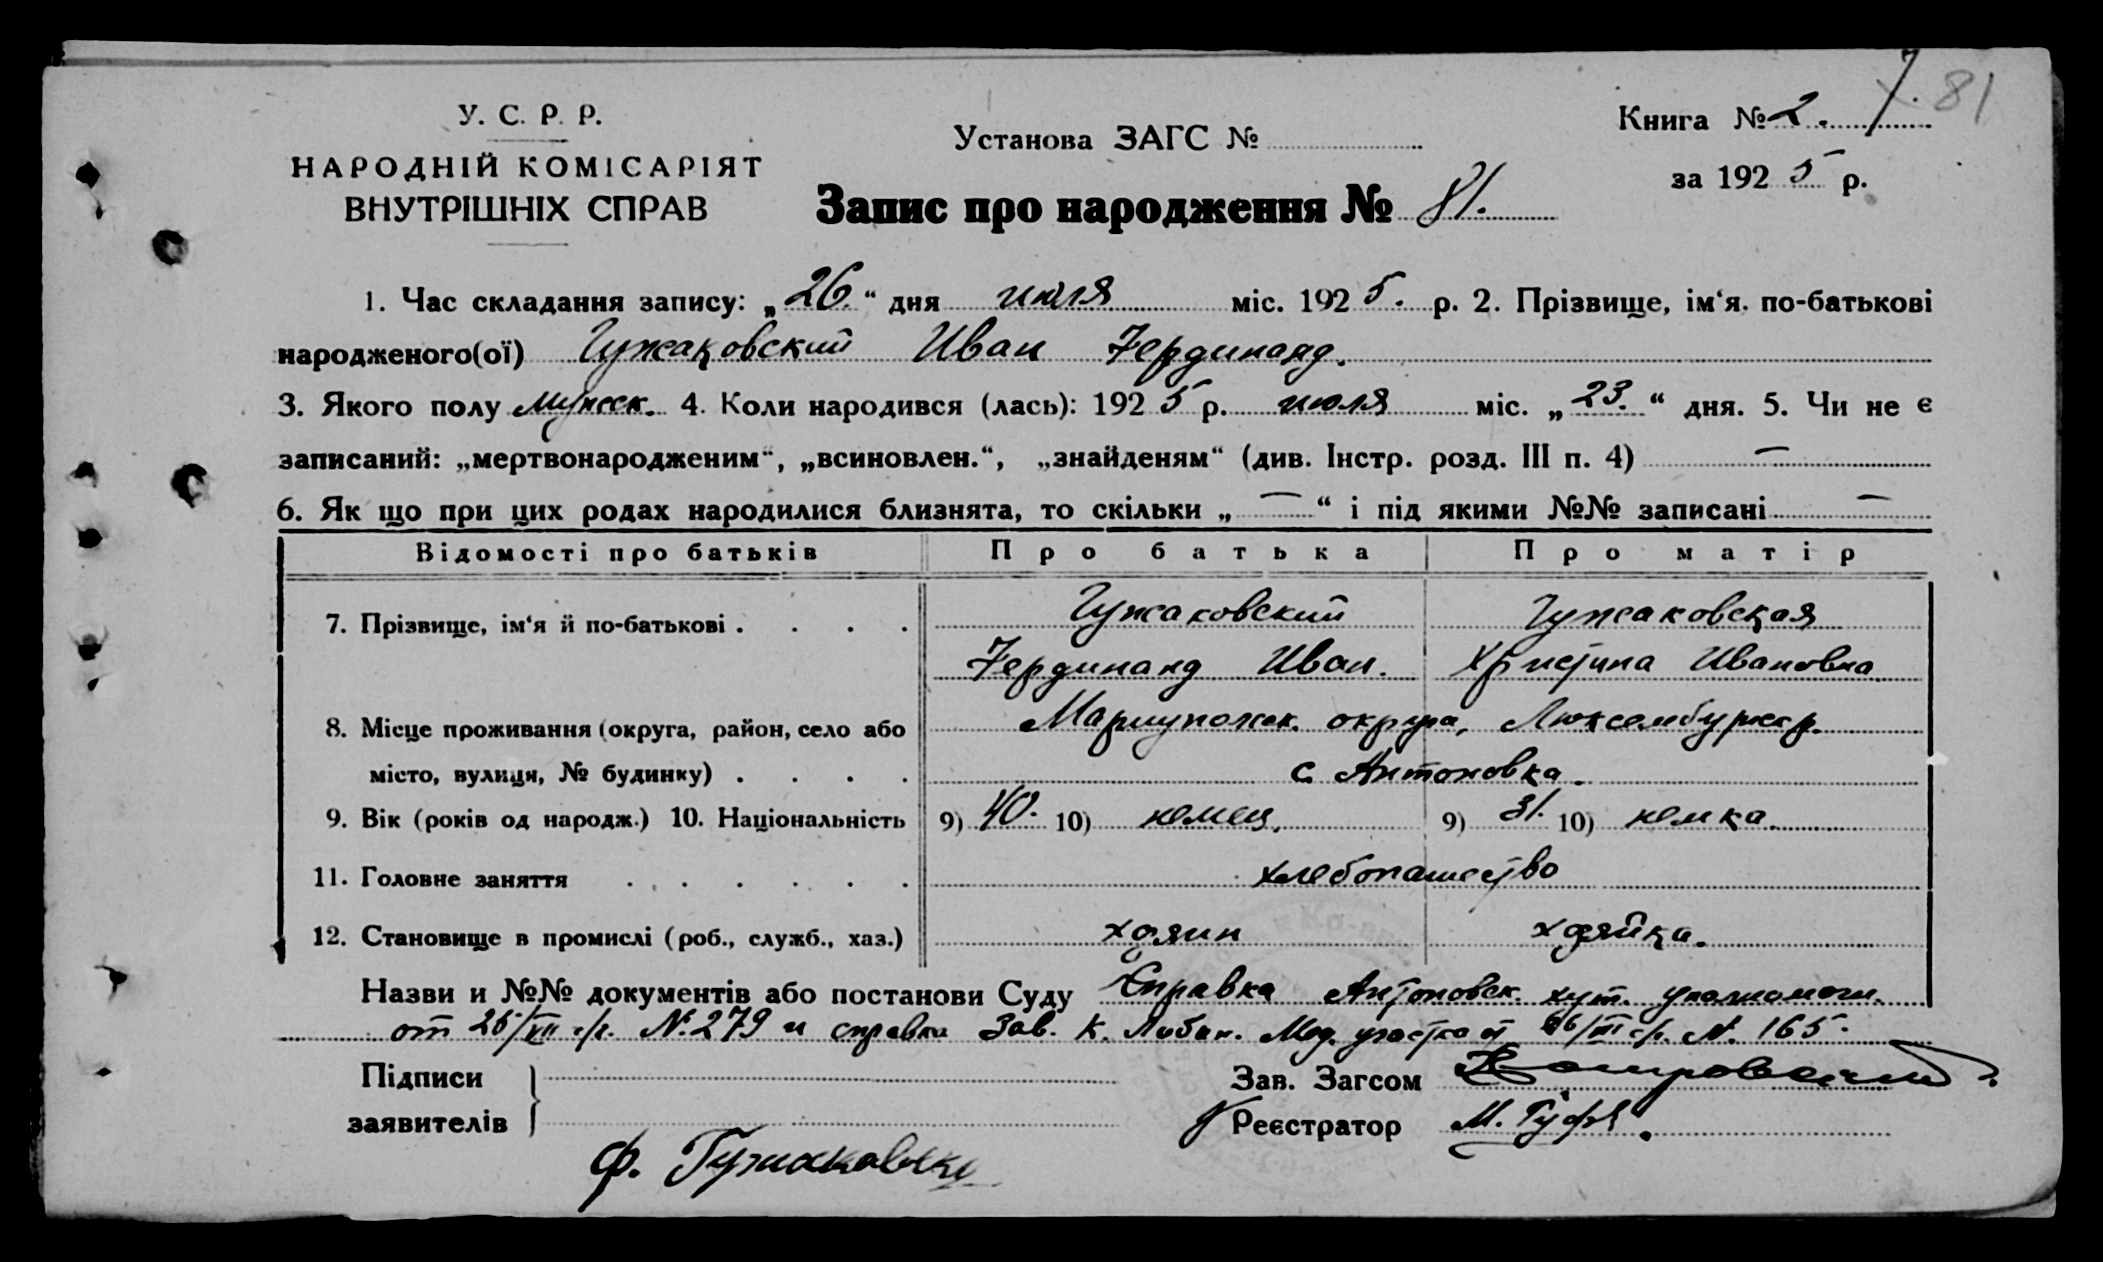 7. 81
У. С. Р. Р.
НАРОДНІЙ КОМІСАРІЯТ
ВНУТРІШНІХ СПРАВ
Установа ЗАГС №
Книга № 2.
за 1925 р.
Запис про народження № 81.
1. Час складання запису: „26.“ дня июля міс. 1925. р. 2. Прізвище, ім‘я. по-батькові
народженого(ої) Гужаковский Иван Фердинанд.
3. Якого полу мужеск. 4. Коли народився (лась): 1925 р. июля міс. „23.“ дня. 5. Чи не є
записаний: „мертвонародженим“, „всиновлен.“, „знайденям“ (див. Інстр. розд. III п. 4) —
6. Як що при цих родах народилися близнята, то скільки „—“ і під якими №№ записані —
Відомості про батьків Про батька Про матір
7. Прізвище, ім‘я й по-батькові . . . . Гужаковский Гужаковская
Фердинанд Иван. Христина Ивановна
8. Місце проживання (округа, район, село або Мариупольск. округа, Люксембургск р.
місто, вулиця, № будинку) . . . . с. Антоновка.
9. Вік (років од народж.) 10. Національність 9) 40. 10) немец. 9) 31. 10) немка.
11. Головне заняття . . . . . . хлебопашество
12. Становище в промислі (роб., служб., хаз.) хозяин хозяйка.
Назви и №№ документів або постанови Суду Справка Антоновск. хут. уполномоч.
от 26/VII с/г. № 279 и справки Зав. К. Мед. участка от с/г. № 165.
Підписи
заявителів
Зав. Загсом
Реєстратор М.
Ф. Гужаковски